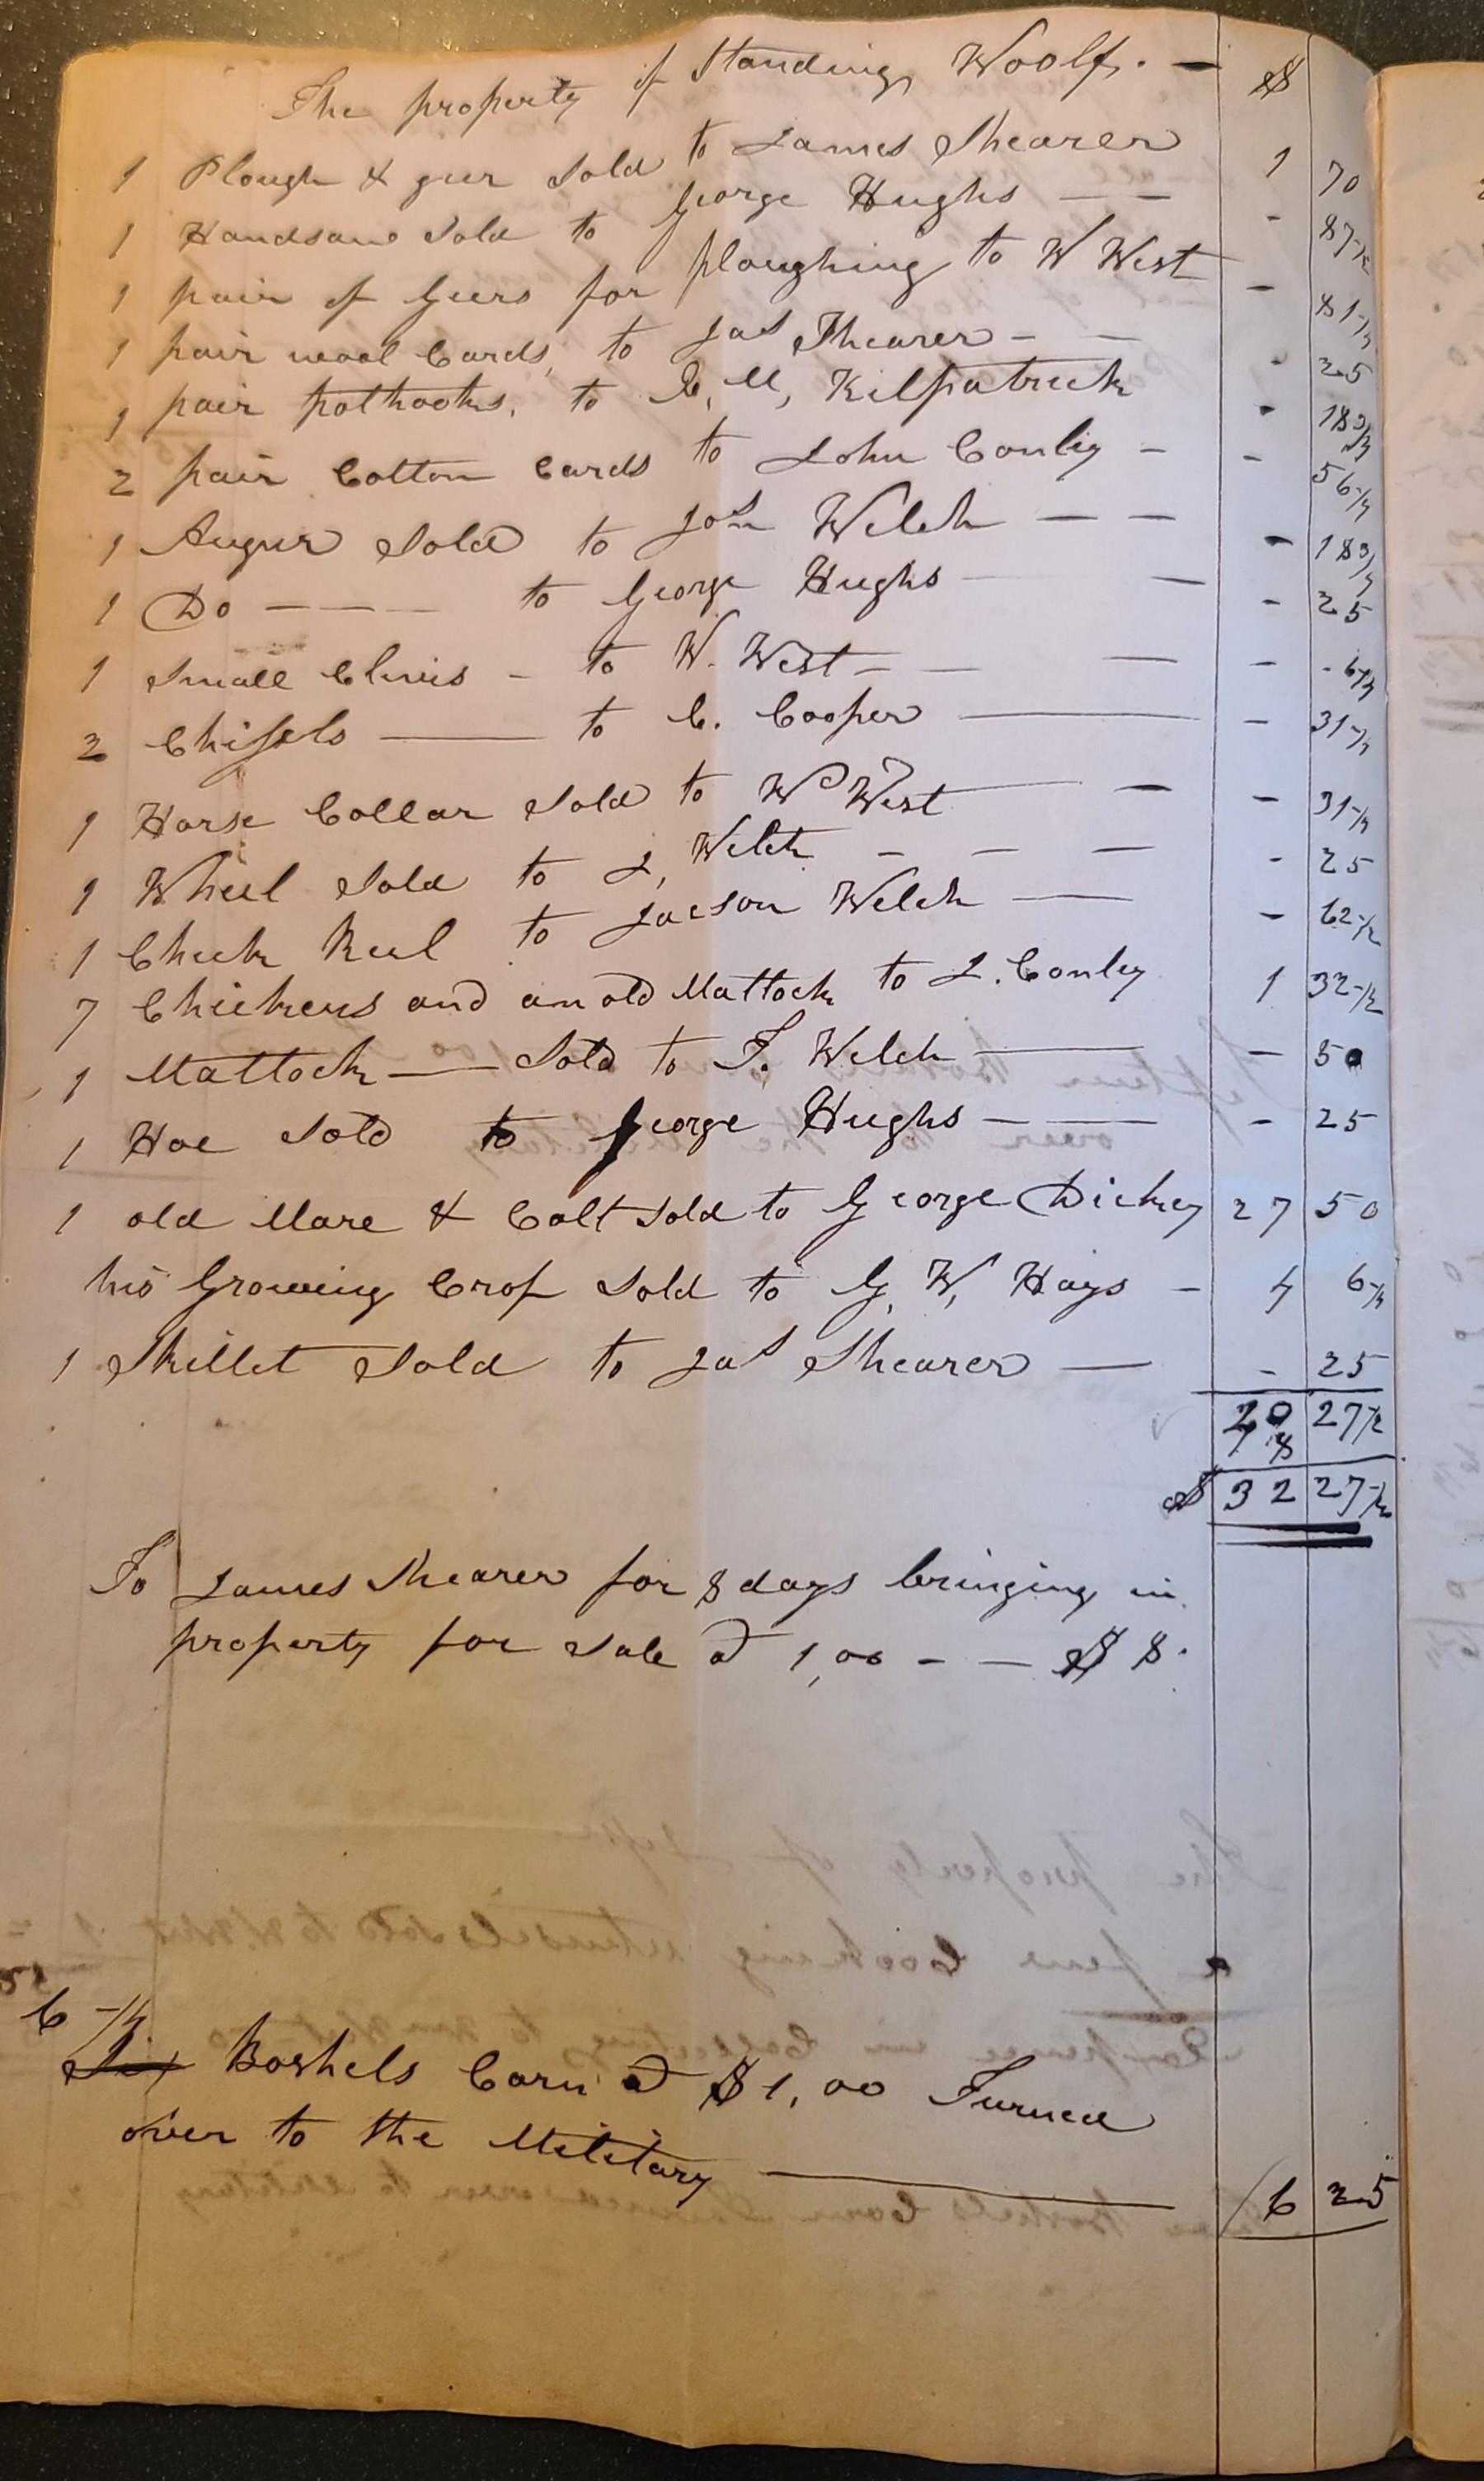 The property of Standing Woolf. — $
1 Plough & geer Sold to James Shearer 1 70
1 Handsaw Sold to George Hughs — — - 87-1/2
1 pair of Geers for ploughing to W West - 81-1/4
1 pair wool Cards, to Jas Shearer - — - 25
1 pair pothooks, to C, M, Kilpatrick - 18 3/4
2 pair Cotton Cards to John Conley - - 56-1/4
1 Augur Sold to Jon Welch — — - 18 3/4
1 Do — — — to George Hughs — — - 25
1 Small Clivis - to W. West — — — - 6-1/4
2 Chissels — to C. Cooper — - 31-1/4
1 Horse Collar Sold to Wm West — - 31-1/4
1 Wheel Sold to J, Welch - — — - 25
1 Check Reel to Jacson Welch — - 62-1/2
7 Chickens and an old Mattock to J. Conley 1 32-1/2
1 Mattock — Sold to T. Welch — - 50
1 Hoe Sold to George Hughs — — - 25
1 old Mare & Colt Sold to George Dickey 27 50
his Growing Crop Sold to G, W, Hays - 4 6-1/4
1 Skillet Sold to Jas Shearer — - 25
27 1/2
$ 32 27-1/2
To James Shearer for 8 days bringing in
property for Sale @ 1,00 - — $ 8.
6-1/4
Six Boshels Corn @ $1,00 Turned
over to the Military — 6 25